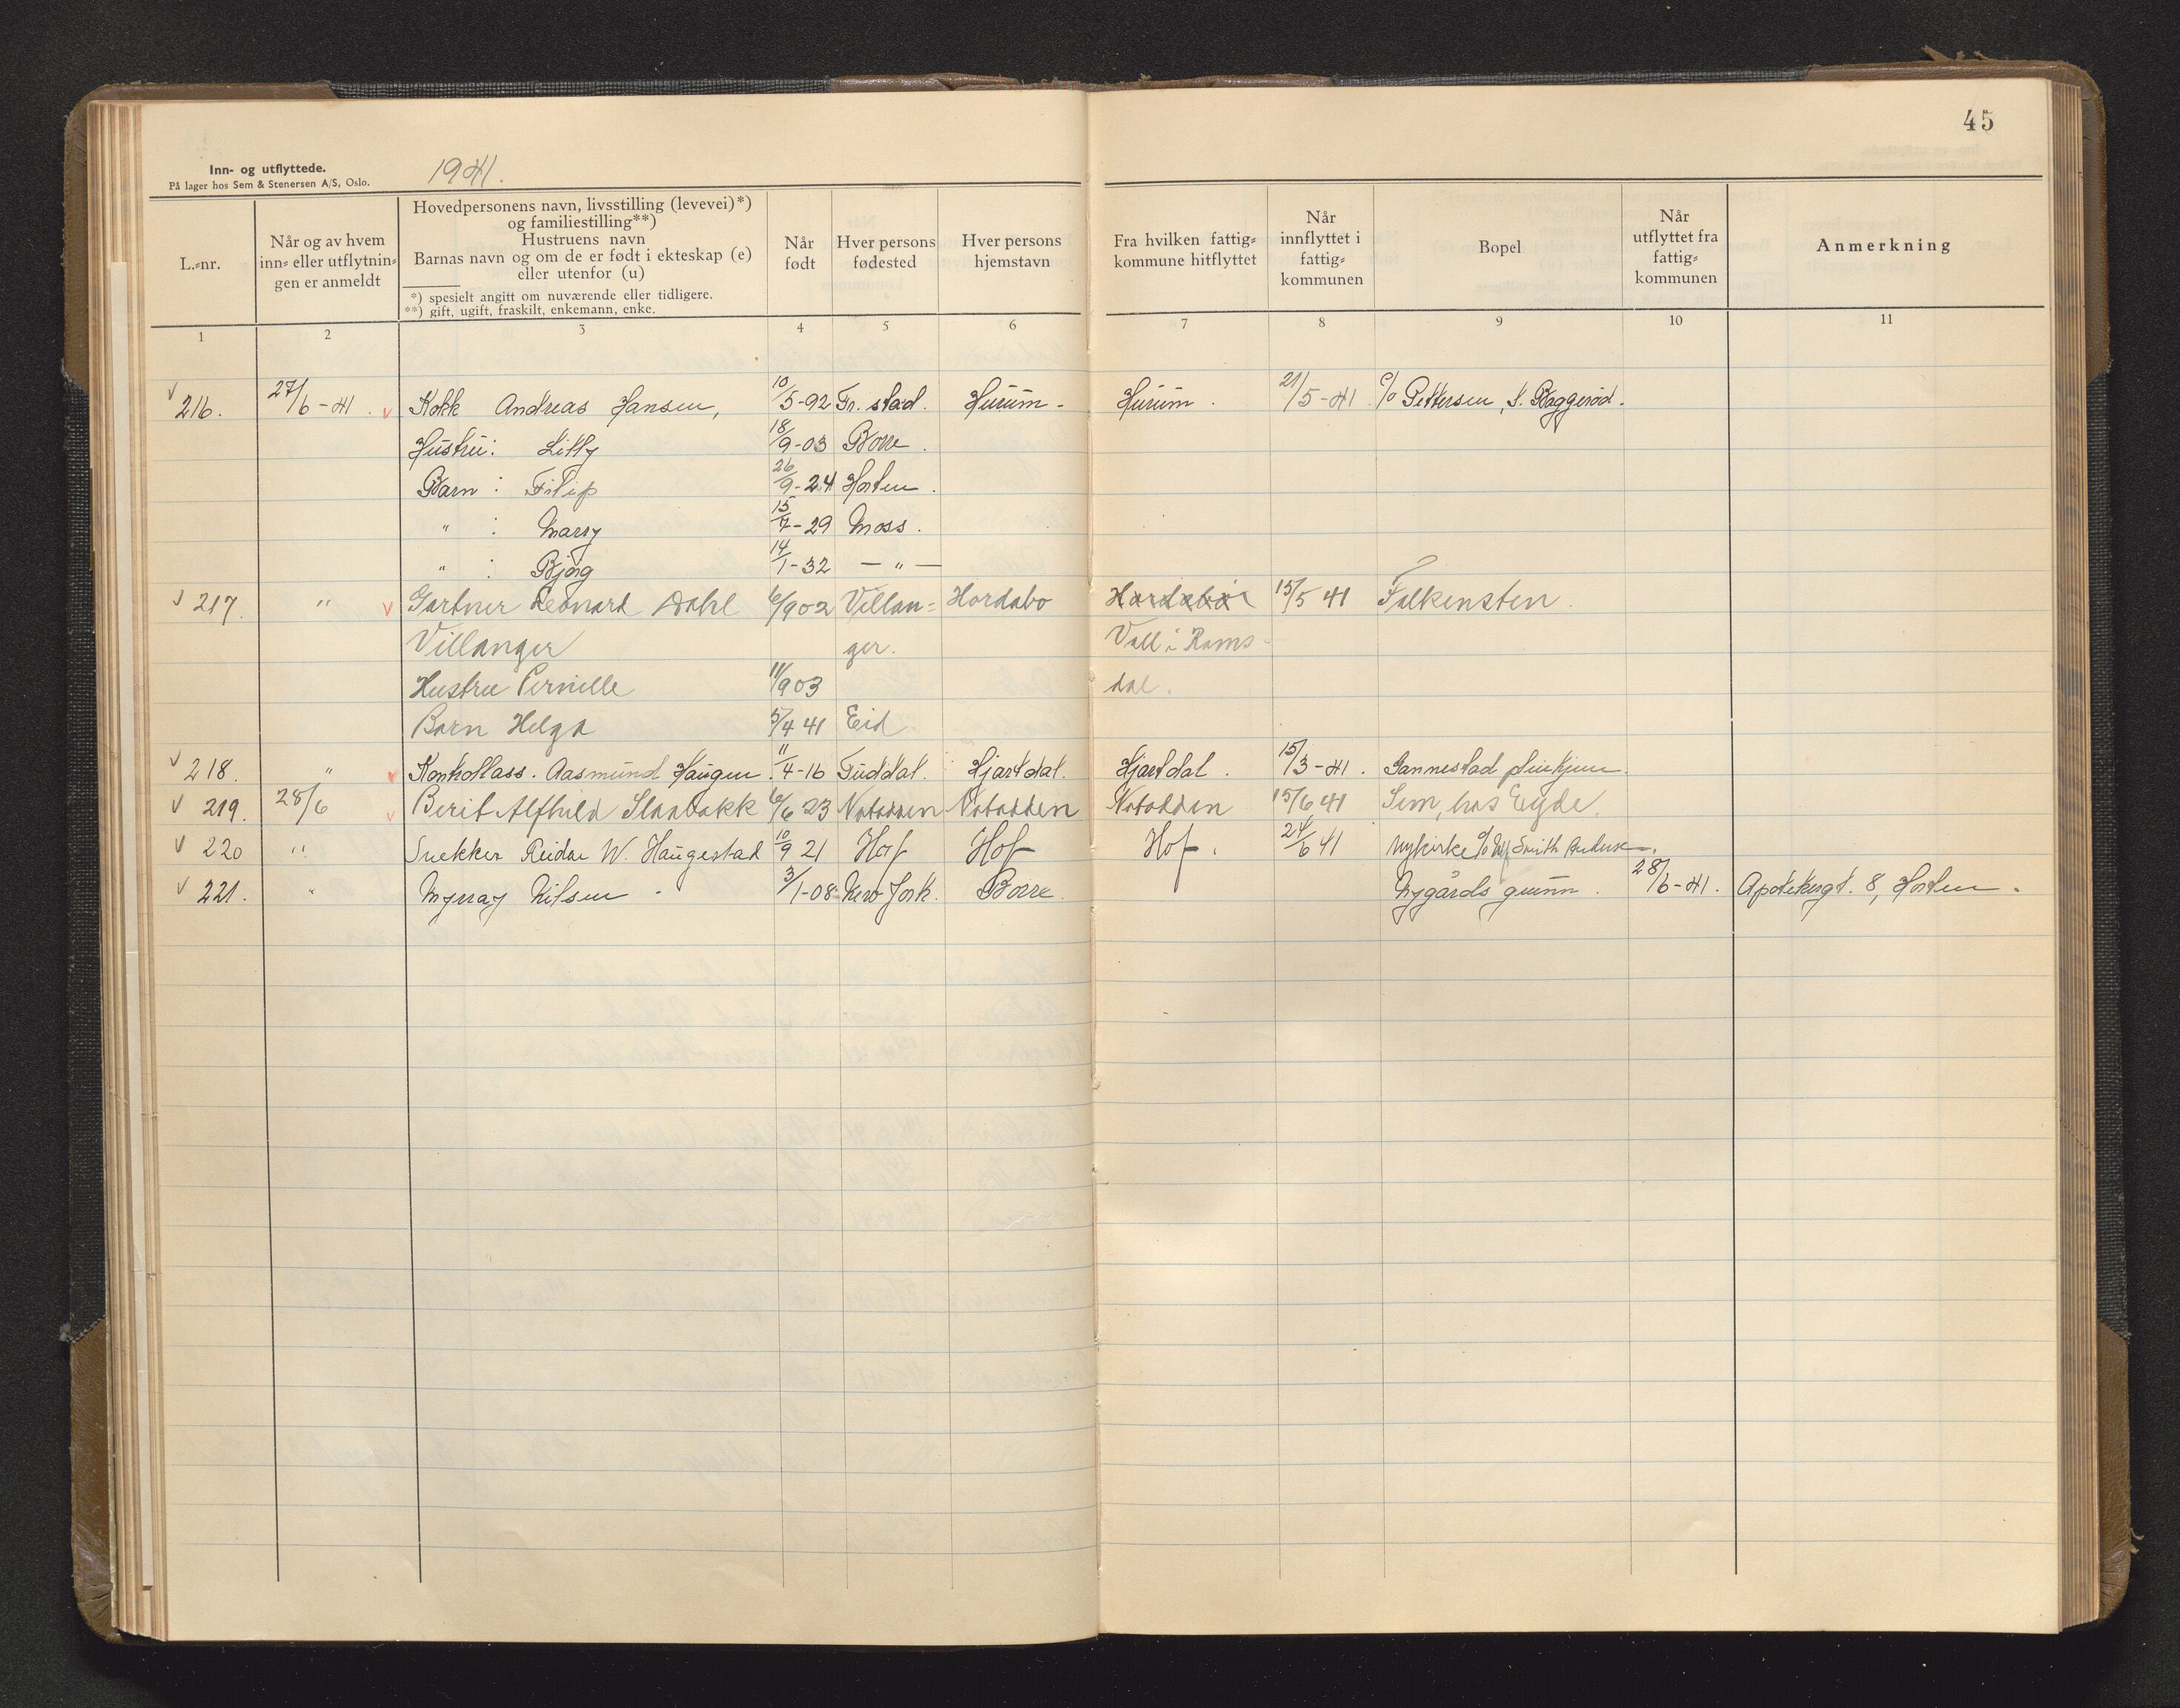 45
Inn- og utflyttede.
På lager hos Sem & Stenersen A/S, Oslo.
1941.
L.-nr.
Når og av hvem
inn- eller utflytnin-
gen er anmeldt
Hovedpersonens navn, livsstilling (levevei)*)
og familiestilling**)
Hustruens navn
Barnas navn og om de er født i ekteskap (e)
eller utenfor (u)
*) spesielt angitt om nuværende eller tidligere.
**) gift, ugift, fraskilt, enkemann, enke.
Når
født
Hver persons
fødested
Hver persons
hjemstavn
Fra hvilken fattig-
kommune hitflyttet
Når
innflyttet i
fattig-
kommunen
Bopel
Når
utflyttet fra
fattig-
kommunen
Anmerkning
1 2 3 4 5 6 7 8 9 10 11
216. 27/6-41. Kokk Andreas Hansen, 10/5-92 Fr.stad. Hurum. Hurum. 21/5-41 c/o Pettersen, S. Baggerød.
Hustru: Lilly 18/9-03 Borre.
Barn: Filip 26/9-24 Horten.
" : Marry 15/7-29 Moss.
" : Bjørg 14/1-32 — " —
217. " Gartner Leonard Dahl 6/902 Villan- Hordabo Hordabø 15/5 41 Falkensten.
Villanger ger. Voll i Roms-
Hustru Pernille 11/903 dal.
Barn Helga 5/4 41 Eid
218. " Kontrollass. Aasmund Haugen. 11/4-16 Tuddal. Hjartdal. Hjartdal. 15/3-41. Gannestad
219. 28/6 Berit Alfhild 6/6 23 Notodden Notodden Notodden 15/6 41 Sem, hos Eyde.
220 " Snekker Reidar W. Haugestad 10/9 21 Hof Hof Hof. 24/6 41 Nykirke c/o Smith
221. " Myrray Nilsen 3/1-08 New York. Borre. Nygårds grunn. 28/6-41. Apotekergt. 8, Horten.